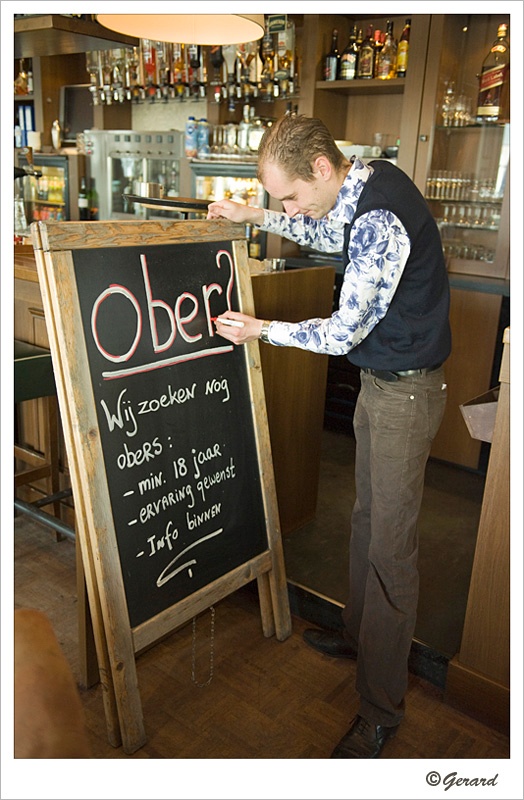 Ober?
Wij zoeken nog
obers:
- min. 18 jaar
- ervaring gewenst
- Info binnen
©Gerard